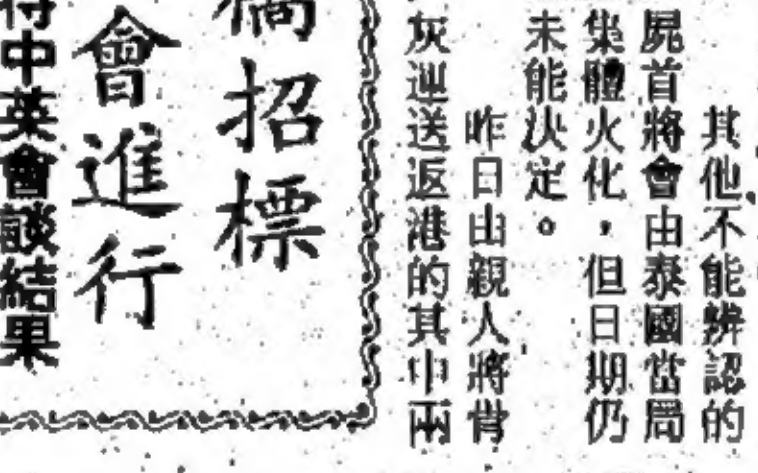 其他不能辨認的
屍首將會由泰國當局
集體火化，但日期仍
未能決定。
昨日由親人將骨
灰運送返港的其中兩
招標
會進行
中英會談結果